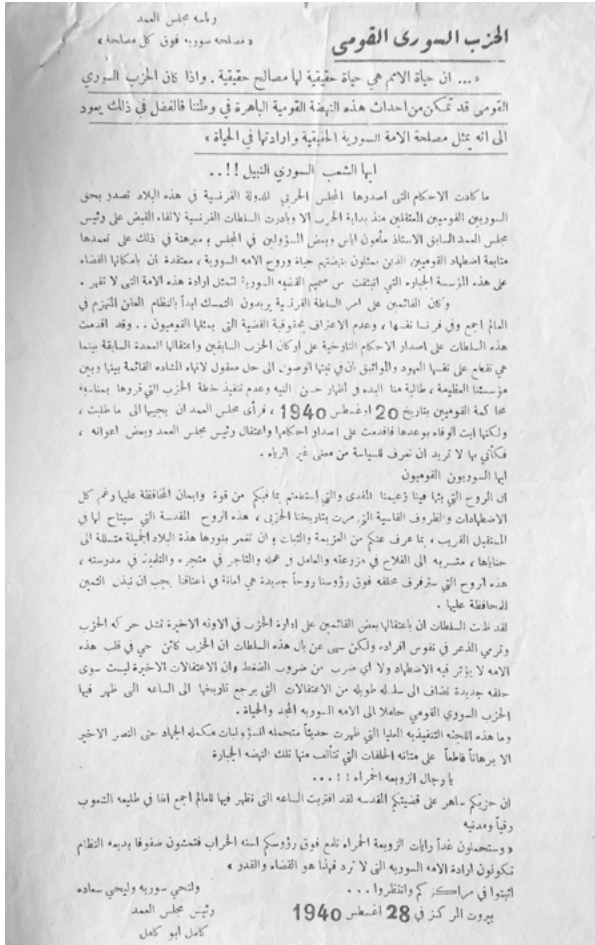 رئاسة مجلس العمد
« مصلحة سورية فوق كل مصلحة »
الحزب السوري القومي
« ... ان حياة الامم هي حياة حقيقية لها مصالح حقيقية . واذا كان الحزب السوري
القومي قد تمكن من احداث هذه النهضة القومية الباهرة في وطننا فالفضل في ذلك يعود
الى انه يمثل مصلحة الامة السورية الحقيقية وارادتها في الحياة »
ايها الشعب السوري النبيل !! ..
ما كادت الاحكام التى اصدرها المجلس الحربي للدولة الفرنسية في هذه البلاد تصدر بحق
السوريين القوميين المعتقلين منذ بداية الحرب الا وبادرت السلطات الفرنسية لالقاء القبض على رئيس
مجلس العمد السابق الاستاذ مأمون اياس وبعض المسؤولين في المجلس ، مبرهنة في ذلك على تعمدها
متابعة اضطهاد القوميين الذين يمثلون بنهضتهم حياة وروح الامه السورية ، معتقدة ان بامكانها القضاء
على هذه المؤسسة الجباره التي انبثقت من صميم القضيه السورية لتمثل ارادة هذه الامه التى لا تقهر .
وكان القائمين على امر السلطة الفرنسية يريدون التمسك ابداً بالنظام العفن المنهزم في
العالم اجمع وفي فرنسا نفسها ، وعدم الاعتراف بحقوقية القضية التى يمثلها القوميون .. وقد اقدمت
هذه السلطات على اصدار الاحكام التاريخية على اركان الحزب السابقين واعتقالها العمدة السابقة بينما
هي تقطع على نفسها العهود والمواثيق بأن في نيتها الوصول الى حل معقول لانهاء المشاده القائمة بينها وبين
مؤسستنا العظيمة ، طالبة منا البدء في اظهار حسن النيه وعدم تنفيذ خطة الحزب التي قررها بمناسبة
محاكمة القوميين بتاريخ 20 اغسطس 1940 ، فرأى مجلس العمد ان يجيبها الى ما طلبت ،
ولكنها ابت الوفاء بوعدها فاقدمت على اصدار احكامها واعتقال رئيس مجلس العمد وبعض اعوانه ،
فكأني بها لا تريد ان تعرف للسياسة من معنى غير الرياء .
ايها السوريون القوميون
ان الروح التي بثها فينا زعيمنا المفدى والتي استطعتم بما فيكم من قوة وايمان المحافظة عليها رغم كل
الاضطهادات والظروف القاسية التى مرت بتاريخنا الحزبي ، هذه الروح المقدسة التي سيتاح لها في
المستقبل القريب ، بما عرف عنكم من العزيمة والثبات ، ان تغمر بنورها هذه البلاد الجميلة متسللة الى
حناياها ، متسربه الى الفلاح في مزرعته والعامل في عمله والتاجر في متجره والتلميذ في مدرسته ،
هذه الروح التي سترفرف محلقه فوق رؤوسنا روحاً جديدة هي امانة في اعناقنا يجب ان نبذل الثمين
للمحافظة عليها .
لقد ظنت السلطات ان باعتقالها بعض القائمين على إدارة الحزب في الاونه الاخيرة تشل حركه الحزب
وترمي الذعر في نفوس افراده ولكن سهى عن بال هذه السلطات ان الحزب كائن حي في قلب هذه
الامه لا يؤثر فيه الاضطهاد ولا اي ضرب من ضروب الضغط وان الاعتقالات الاخيرة ليست سوى
حلقه جديدة تضاف الى سلسله طويله من الاعتقالات التى يرجع تاريخها الى الساعه التى ظهر فيها
الحزب السوري القومي حاملا الى الامه السوريه المجد والحياة .
وما هذه اللجنه التنفيذيه العليا التي ظهرت حديثاً متحمله المسؤوليات مكمله الجهاد حتى النصر الاخير
الا برهاناً قاطعاً على متانه الحلقات التي تتألف منها تلك النهضه الجبارة
يا رجال الزوبعه الحمراء !! ...
ان حزبكم ساهر على قضيتكم المقدسه لقد اقتربت الساعه التى نظهر فيها للعالم اجمع اننا في طليعه الشعوب
رقياً ومدنيه
« وستحملون غداً رايات الزوبعة الحمراء تلمع فوق رؤوسكم اسنه الحراب فتمشون صفوفا بديعه النظام
تكونون ارادة الامه السوريه التى لا ترد فهذا هو القضاء والقدر »
اثبتوا في مراكزكم وانتظروا ...
ولتحي سوريه وليحي سعاده
بيروت المركز في 28 اغسطس 1940
رئيس مجلس العمد
كامل ابو كامل